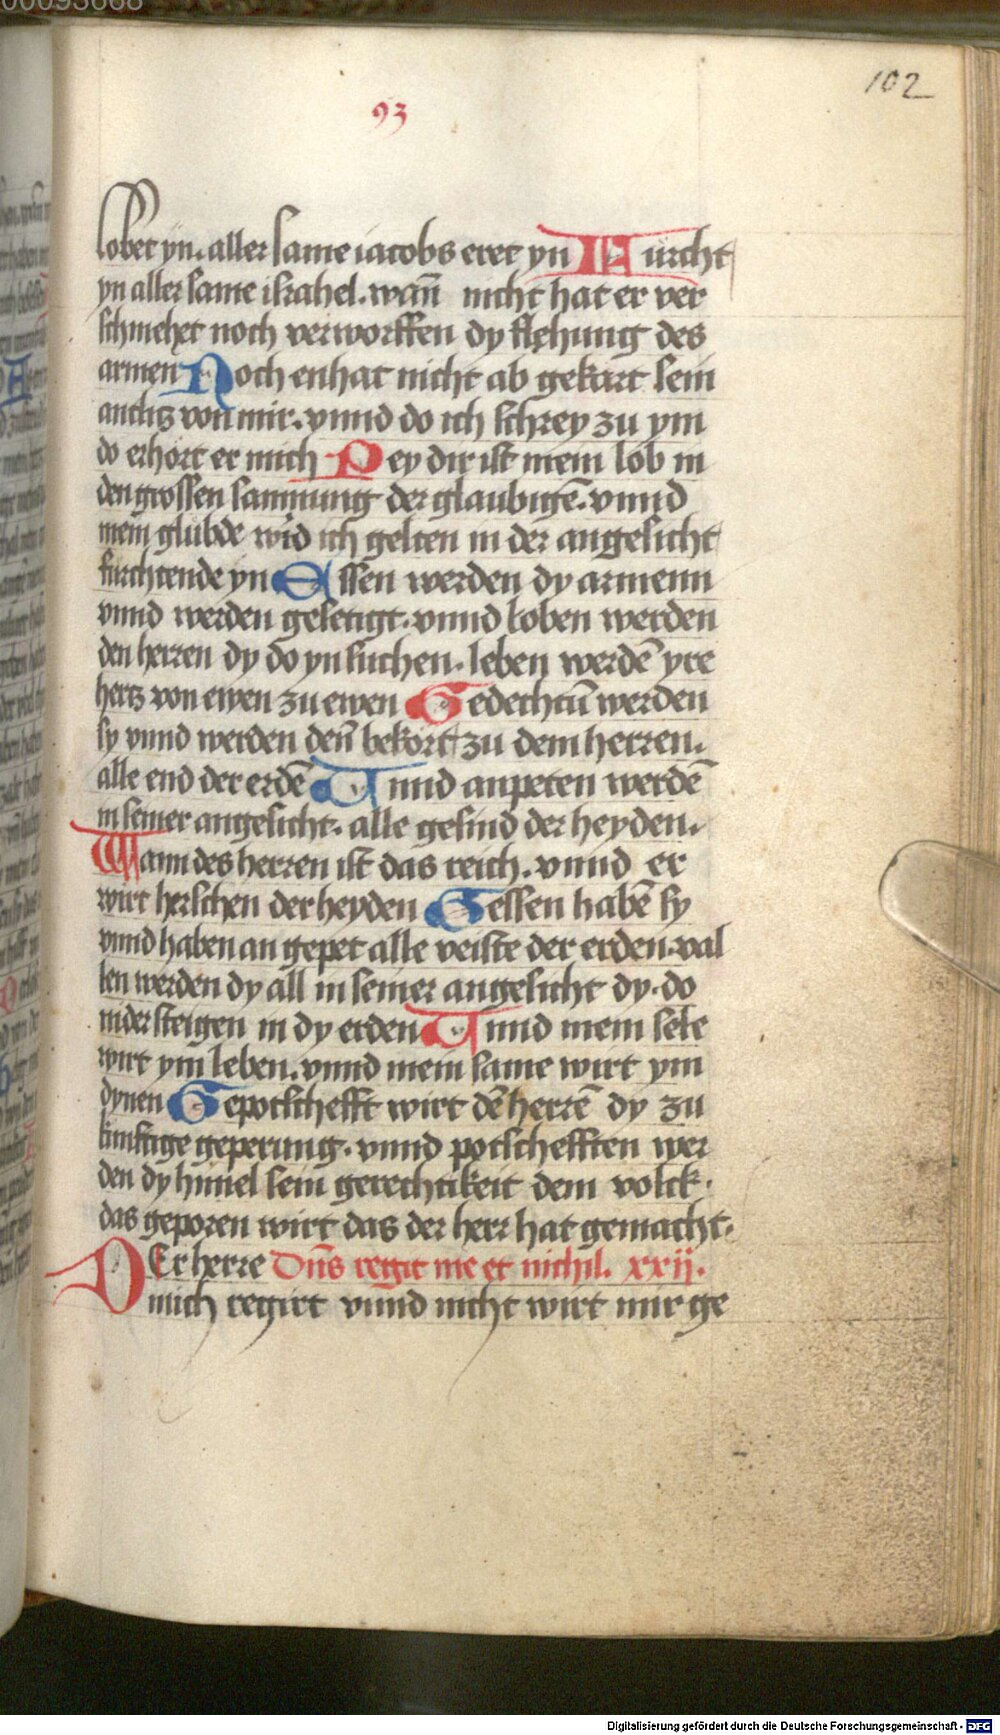 00093668
102
93
lobet yn. aller same iacobs eret yn Furcht
yn aller same israhel. wañ nicht hat er ver
schmehet noch verworffen dy flehung des
armen Noch enhat nicht ab gekart sein
antlitz von mir. vnnd do ich schrey zu ym
do erhört er mich Pey dir ist mein lob in
den grossen samnung der glaubigē. vnnd
mein glubde wird ich gelten in der angesicht
furchtende yn Essen werden dy armenn
vnnd werden gesetigt. vnnd loben werden
den herren dy do yn suchen. leben werdē yre
hertz von ewen zu ewen Gedechtũ werden
sy vnnd werden deñ bekört zu dem herren.
alle end der erdē Vnnd anpeten werdē
in seiner angesicht. alle gesind der heyden.
Wann des herren ist das reich. vnnd er
wirt herschen der heyden Gessen habē sy
vnnd haben an gepet alle veiste der erden. val
len werden dy all in seiner angesicht dy. do
nider steigen in dy erden Vnnd mein sele
wirt ym leben. vnnd mein same wirt ym
dynen Gepotschefft wirt dē herrē dy zu
kunftige geperung. vnnd potschefften wer
den dy himel sein gerechtikeit dem volck.
das geporen wirt das der herr hat gemacht.
DEr herre Dñs regit me et nichil. xxij.
mich regirt vnnd nicht wirt mir ge
Digitalisierung gefördert durch die Deutsche Forschungsgemeinschaft - DFG